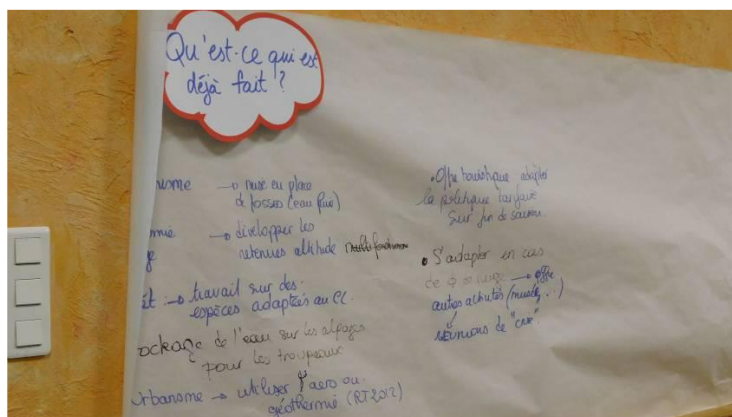 Qu'est-ce qui est
déjà fait ?
nisme → mise en place
de fosses (eau pluie)
développer les
retenues altitude
êt → travail sur des
espèces adaptées au CC.
ockage de l'eau sur les alpages
pour les troupeaux
Urbanisme → utiliser aero ou
géothermie (RT2012)
• Offre touristique adapter
la politique tarifaire
sur fin de saison.
• S'adapter en cas
de neige → offre
autres activités (musée, ..)
réunions de "crise".